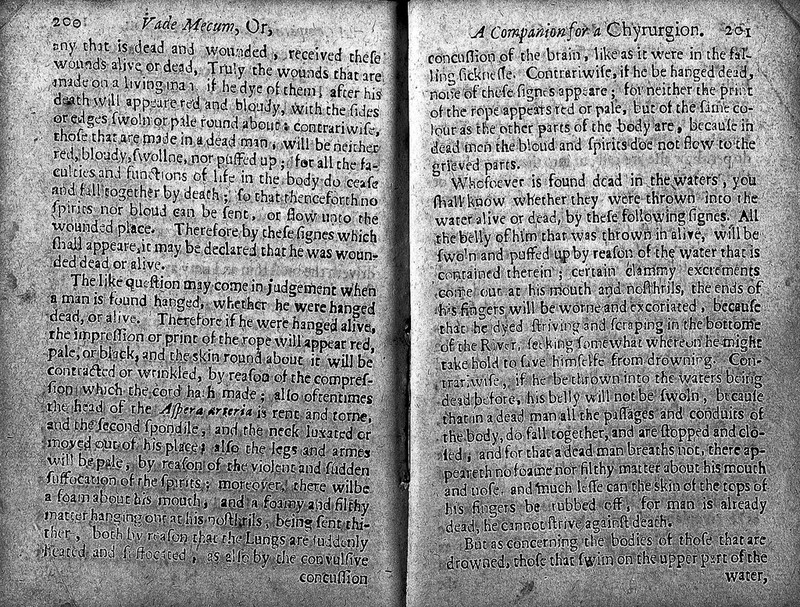 200 Vade Mecum, Or,
any that is dead and wounded, received these
wounds alive or dead, Truly the wounds that are
made on a living man if he dye of them, after his
death will appeare red and bloudy, with the sides
or edges swoln or pale round about: contrariwise,
those that are made in a dead man, will be neither
red, bloudy, swollne, nor puffed up; for all the fa-
culties and functions of life in the body do cease
and fall together by death; so that thenceforth no
spirits nor bloud can be sent, or flow unto the
wounded place. Therefore by these signes which
shall appeare, it may be declared that he was woun-
ded dead or alive.
The like question may come in judgement when
a man is found hanged, whether he were hanged
dead, or alive. Therefore if he were hanged alive,
the impression or print of the rope will appear red,
pale, or black, and the skin round about it will be
contracted or wrinkled, by reason of the compres-
sion which the cord hath made; also oftentimes
the head of the Aspera arteria is rent and torne,
and the second spondile, and the neck luxated or
moved out of his place; also the legs and armes
will be pale, by reason of the violent and sudden
suffocation of the spirits; moreover, there wilbe
a foam about his mouth, and a foamy and filthy
matter hanging out at his nosthrils, being sent thi-
ther, both by reason that the Lungs are suddenly
heated and suffocated, as also by the convulsive
concussion
A Companion for a Chyrurgion. 201
concussion of the brain, like as it were in the fal-
ling sicknesse. Contrariwise, if he be hanged dead,
none of these signes appeare; for neither the print
of the rope appears red or pale, but of the same co-
lour as the other parts of the body are, because in
dead men the bloud and spirits doe not flow to the
grieved parts.
Whosoever is found dead in the waters, you
shall know whether they were thrown into the
water alive or dead, by these following signes. All
the belly of him that was thrown in alive, will be
swoln and puffed up by reason of the water that is
contained therein; certain clammy excrements
come out at his mouth and nosthrils, the ends of
his fingers will be worne and excoriated, because
that he dyed striving and scraping in the bottome
of the River, seeking somewhat whereon he might
take hold to save himselfe from drowning. Con-
trariwise, if he be thrown into the waters being
dead before, his belly will not be swoln, because
that in a dead man all the passages and conduits of
the body, do fall together, and are stopped and clo-
sed, and for that a dead man breaths not, there ap-
peareth no foame nor filthy matter about his mouth
and nose, and much lesse can the skin of the tops of
his fingers be rubbed off, for man is already
dead, he cannot strive against death.
But as concerning the bodies of those that are
drowned, those that swim on the upper part of the
water,